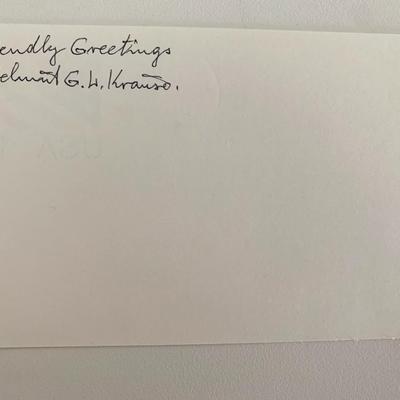 endly Greetings
elmut G. W. Krause.